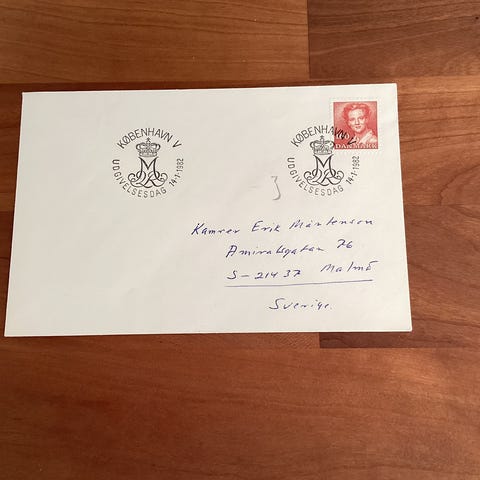 KØBENHAVN V
UDGIVELSESDAG 14-1-1982
KØBENHAVN V
UDGIVELSESDAG 14-1-1982
DANMARK
3
Kamrer Erik Mårtenson
Amiralsgatan 76
S-214 37 Malmö
Sverige.